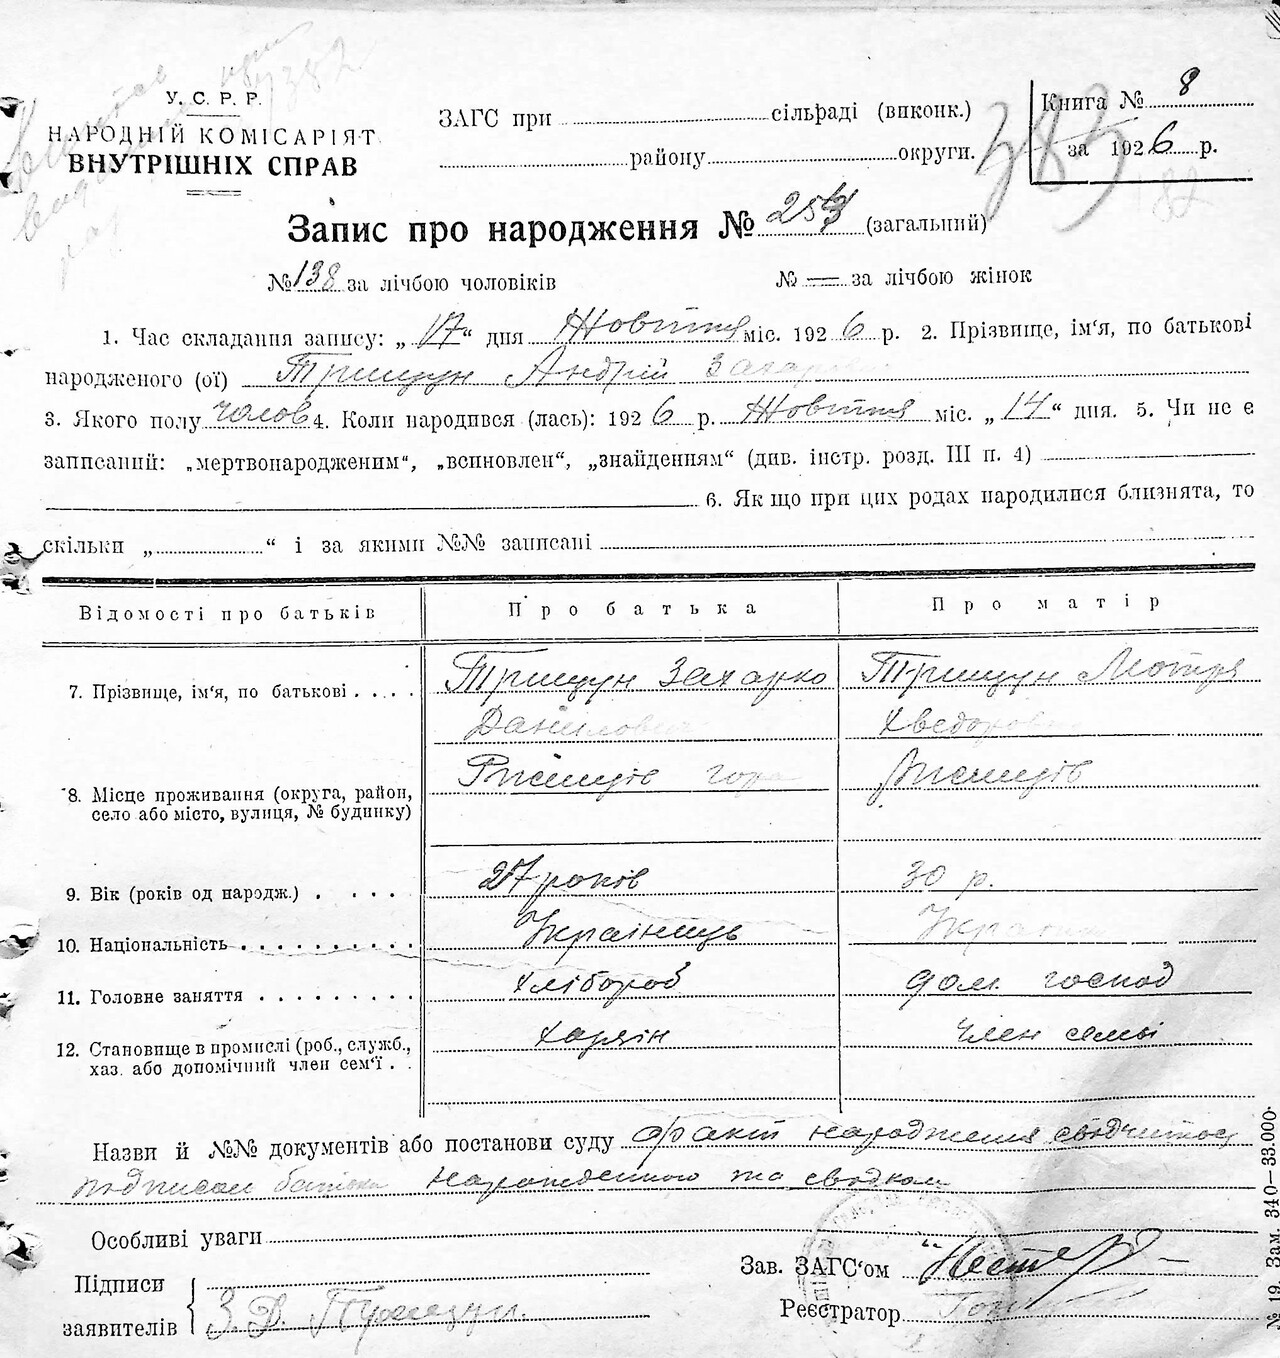 У. С. Р. Р.
НАРОДНІЙ КОМІСАРІЯТ
ВНУТРІШНІХ СПРАВ
ЗАГС при сільраді (виконк.)
району округи.
Книга № 8
за 1926 р.
383
182
Запис про народження № 254 (загальний)
№ 138 за лічбою чоловіків № — за лічбою жінок
1. Час складання запису: „17“ дня Жовтня міс. 1926 р. 2. Прізвище, ім'я, по батькові
народженого (ої) Трищун Андрій Захарович
3. Якого полу чолов 4. Коли народився (лась): 1926 р. Жовтня міс. „14“ дня. 5. Чи не є
записаний: „мертвонародженим“, „вспновлен“, „знайденням“ (див. інстр. розд. III п. 4)
6. Як що при цих родах народилися близнята, то
скільки „ “ і за якими №№ записані
Відомості про батьків Про батька Про матір
7. Прізвище, ім'я, по батькові . . . . Трищун Захарко Трищун Мотря
Данилович Хведоровна
8. Місце проживання (округа, район, село або місто, вулиця, № будинку) Ржищів гора Ржищів
9. Вік (років од народж.) . . . . 27 років 30 р.
10. Національність . . . . . . . . . . Українець Україн
11. Головне заняття . . . . . . . . . хлібороб дом. господ
12. Становище в промислі (роб., служб., хаз. або допомічний член сем'ї . . хазяін член семьі
Назви й №№ документів або постанови суду факт народження свідчиться
подписом батька народженного та сводком
Особливі уваги
Підписи
заявителів З. Д. Трищун.
Зав. ЗАГС'ом
Реєстратор
№ 19. Зам. 340—33.000